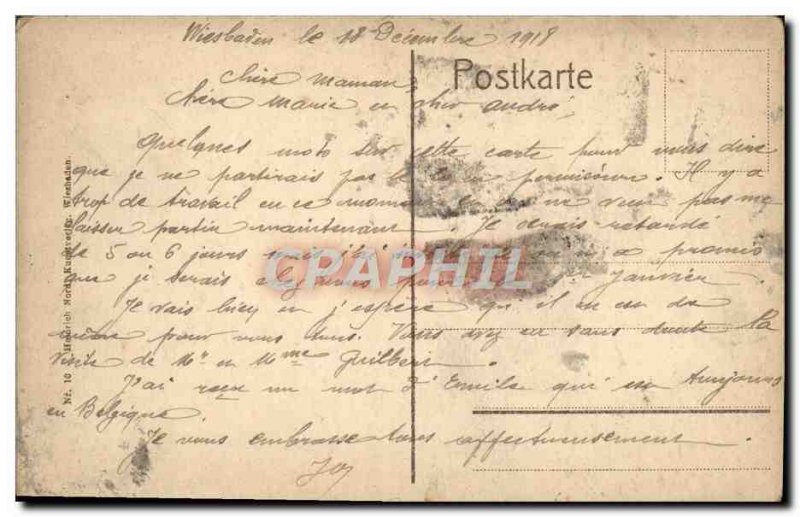 Wiesbaden le 18 Décembre 1918
Postkarte
chère maman,
chère Marie et cher andré,
Quelques mots sur cette carte pour vous dire
que je ne partirais pas le en permission. Il y a
trop de travail en ce moment et on ne veut pas me
laisser partir maintenant. Je serais retardé
de 5 ou 6 jours mais j'ai a promis
que je serais chez vous pour Janvier
Je vais bien et j'espère qu'il en est de
même pour vous tous. Vous avez eu sans doute la
visite de Mr et Mme Guilbert.
J'ai reçu un mot d'Emile qui est toujours
en Belgique.
Je vous embrasse tous affectueusement
CPARHIL
Nr. 10 Heinrich Kunstverlag, Wiesbaden.